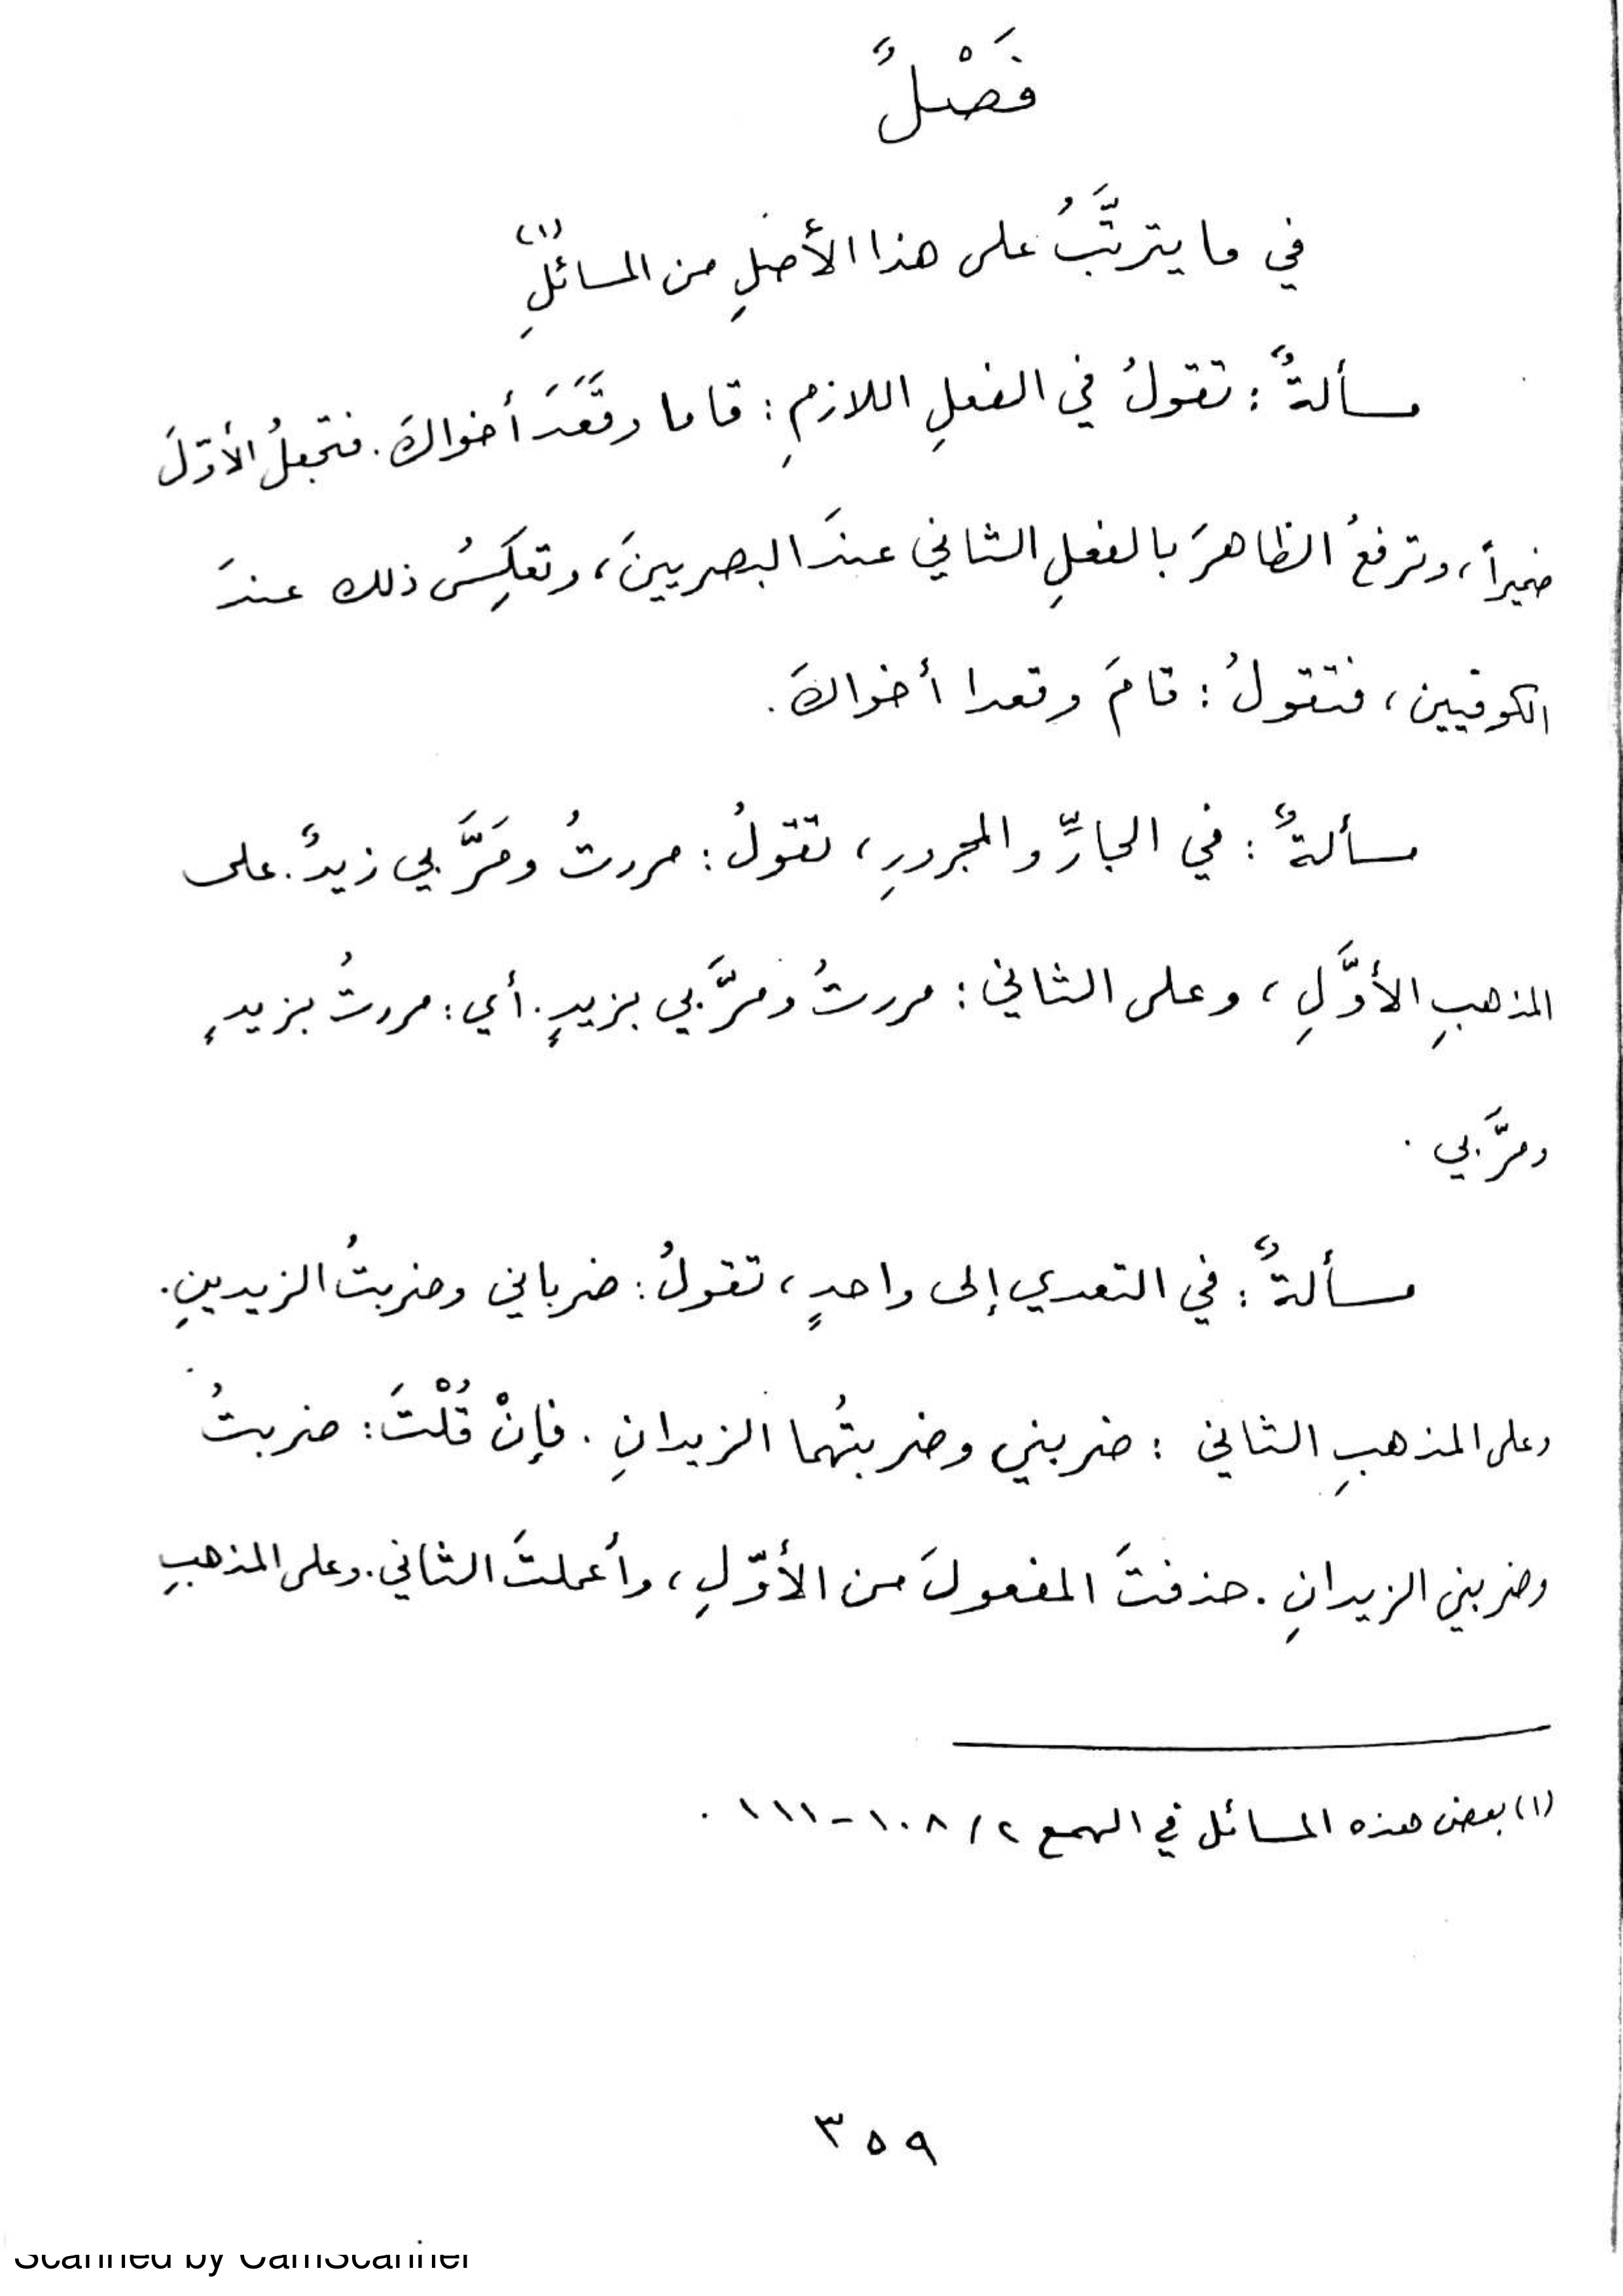 فَصْلٌ
في ما يترتَّبُ على هذا الأصلِ من المسائلِ(١)
مسألةٌ : تقولُ في الفعلِ اللازمِ : قاما وقَعَدَ أخواكَ . فتجعلُ الأوّلَ
ضميراً ، وترفعُ الظاهرَ بالفعلِ الثاني عندَ البصريينَ ، وتعكِسُ ذلك عندَ
الكوفيين ، فتقولُ : قامَ وقعدا أخواكَ .
مسألةٌ : في الجارِّ والمجرورِ ، تقولُ : مررتُ ومَرَّ بي زيدٌ . على
المذهبِ الأوَّلِ ، وعلى الثاني : مررتُ ومرَّ بي بزيدٍ . أي : مررتُ بزيدٍ
ومرَّ بي .
مسألةٌ : في التعدي إلى واحدٍ ، تقولُ : ضرباني وضربتُ الزيدينِ .
وعلى المذهبِ الثاني : ضربني وضربتُهما الزيدانِ . فإنْ قُلْتَ : ضربتُ
وضربني الزيدانِ . حذفتَ المفعولَ من الأوّلِ ، وأعملتَ الثاني . وعلى المذهبِ
(١) بعض هذه المسائل في الهمع ٢/ ١٠٨-١١١ .
٣٥٩
Scanned by CamScanner